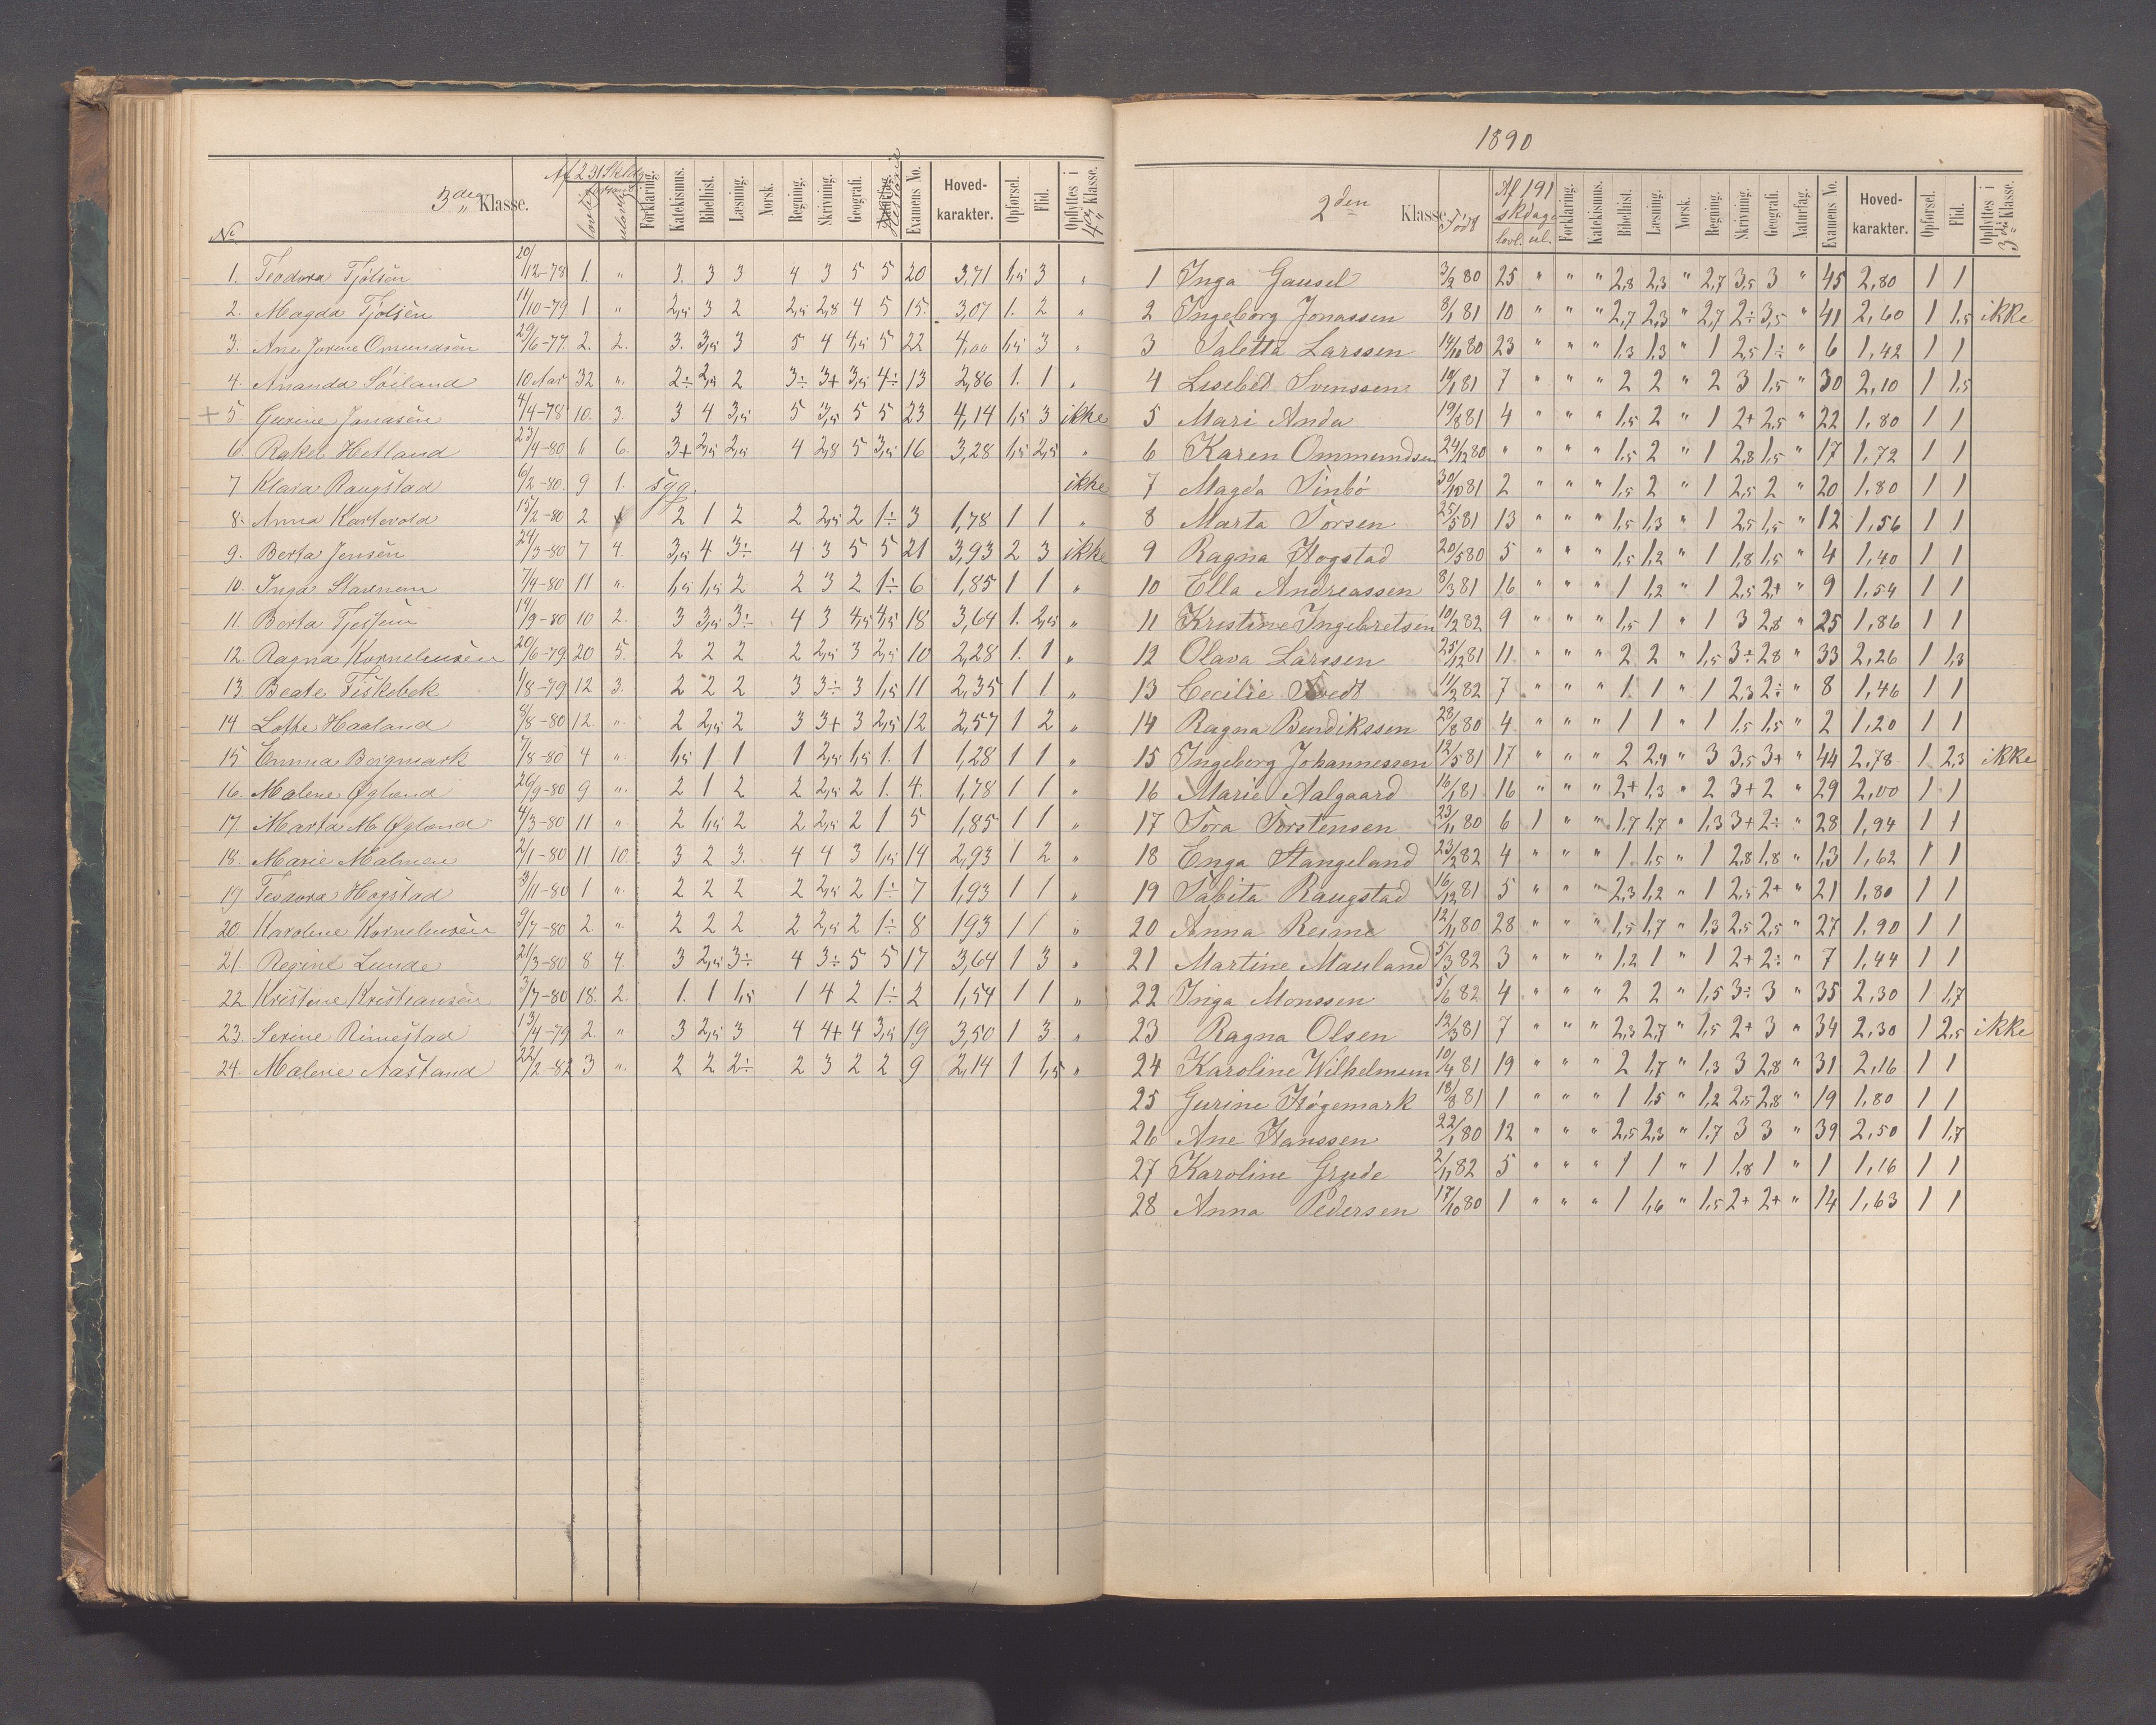 3die Klasse.
Af 231 Skoldage
No
Forklaring. Katekismus. Bibelhist. Læsning. Norsk. Regning. Skrivning. Geografi. Naturfag. Examens No. Hoved-karakter. Opførsel. Flid. Opflyttes i 4de Klasse.
1. Teodora Tjølsen 20/12-78 1. " 3. 3 3 4 3 5 5 20 3,71 1,5 3 "
2. Magda Tjølsen 14/10-79 1 " 2,5 3 2 2,5 2,8 4 5 15. 3,07 1. 2 "
3. Ane Jorine Omundsen 29/6-77. 2. 2. 3. 3,5 3 5 4 4,5 5 22 4,00 1,5 3 "
4. Ananda Soiland 10 Aar 32 ". 2÷ 2,5 2 3÷ 3+ 3,5 4÷ 13 2,86 1. 1 "
+ 5 Gurine Jonasen 4/4-78 10. 3. 3 4 3,5 5 3,5 5 5 23 4,14 1,5 3 ikke
6. Rakel Hetland 23/4-80 " 6. 3+ 2,5 2,5 4 2,8 5 3,5 16 3,28 1,5 2,5 "
7 Klara Raugstad 6/2-80. 9 1. syg. ikke
8. Anna Kartevold 15/2-80 2 2 1 2 2 2,5 2 1÷ 3 1,78 1 1 "
9. Berta Jensen 24/3-80 7 4. 3,5 4 3÷ 4 3 5 5 21 3,93 2 3 ikke
10. Inga Starenem 7/4-80 11 ". 1,5 1,5 2 2 3 2 1÷ 6 1,85 1 1 "
11. Berta Tjessem 14/9-80 10 2. 3 3,5 3÷ 4 3 4,5 4,5 18 3,64 1. 2,5 "
12. Ragna Kornelinsen 20/6-79 20 5. 2 2 2 2 2,5 3 2,5 10 2,28 1. 1 "
13 Beate Fiskebek 1/8-79 12 3. 2 2 2 3 3÷ 3 1,5 11 2,35 1 1 "
14 Lotte Haaland 8/8-80 12. ". 2 2,5 2 3 3+ 3 2,5 12 2,57 1 2 "
15 Emma Bergmark 7/8-80 4 ". 1,5 1 1 1 2,5 1,5 1. 1 1,28 1 1 "
16. Malene Øgland 26/9-80 9 ". 2 1 2 2 2,5 2 1. 4. 1,78 1 1 "
17. Marta M. Øgland 4/3-80 11 ". 2 1,5 2 2 2,5 2 1 5 1,85 1 1 "
18. Marie Malmen 2/1-80 11 10. 3 2 3. 4 4 3 1,5 14 2,93 1 2 "
19 Teodora Hogstad 3/11-80 1 ". 2 2 2 2 2,5 2 1÷ 7 1,93 1 1 "
20. Karoline Kornelinsen 9/7-80 2 ". 2 2 2 2 2,5 2 1÷ 8 193 1 1 "
21. Regine Lunde 21/3-80 8 4. 3 2,5 3÷ 4 3÷ 5 5 17 3,64 1 3 "
22 Kristine Kristiansen 3/7-80 18. 2. 1. 1 1,5 1 4 2 1÷ 2 1,54 1 1 "
23. Serine Rimestad 13/4-79 2. " 3 2,5 3 4 4+ 4 3,5 19 3,50 1 3. "
24. Malene Aastand 22/2-82 3 ". 2 2 2÷ 2 3 2 2 9 2,14 1 1,5 "
1890
2den Klasse. Født
Af 191 skdage
lovl. ul.
Forklaring. Katekismus. Bibelhist. Læsning. Norsk. Regning. Skrivning. Geografi. Naturfag. Examens No. Hoved-karakter. Opførsel. Flid. Opflyttes i 3die Klasse.
1 Inga Gausel 3/2 80 25 " " " 2,8 2,3 " 2,7 3,5 3 " 45 2,80 1 1
2 Ingeborg Jonassen 8/1 81 10 " " " 2,7 2,3 " 2,7 2÷ 3,5 " 41 2,60 1 1,5 ikke
3 Saletta Larssen 14/10 80 23 " " " 1,3 1,3 " 1 2,5 1÷ " 6 1,42 1 1
4 Lisebet Svenssen 10/1 81 7 " " " 2 2 " 2 3 1,5 " 30 2,10 1 1,5
5 Mari Anda 19/8 81 4 " " " 1,5 2 " 1 2+ 2,5 " 22 1,80 1 1
6 Karen Ommundsen 24/12 80 " " " " 1,5 2 " 1 2,8 1,5 " 17 1,72 1 1
7 Magda Sinbø 30/10 81 2 " " " 1,5 2 " 1 2,5 2 " 20 1,80 1 1
8 Marta Torsen 25/5 81 13 " " " 1,5 1,3 " 1 2,5 1,5 " 12 1,56 1 1
9 Ragna Hogstad 20/5 80 5 " " " 1,5 1,2 " 1 1,8 1,5 " 4 1,40 1 1
10 Ella Andreassen 8/3 81 16 " " " 1 1,2 " 1 2,5 2+ " 9 1,54 1 1
11 Kristine Ingebretsen 10/2 82 9 " " " 1,5 1 " 1 3 2,8 " 25 1,86 1 1
12 Olava Larssen 25/12 81 11 " " " 2 2 " 1,5 3÷ 2,8 " 33 2,26 1 1,3
13 Cecilie Tvedt 11/2 82 7 " " " 1 1 " 1 2,3 2÷ " 8 1,46 1 1
14 Ragna Bendikssen 28/8 80 4 " " " 1 1 " 1 1,5 1,5 " 2 1,20 1 1
15 Ingeborg Johannessen 12/5 81 17 " " " 2 2,4 " 3 3,5 3+ " 44 2,78 1 2,3 ikke
16 Marie Aalgaard 16/1 81 16 " " " 2+ 1,3 " 2 3+ 2 " 29 2,00 1 1
17 Tora Torstensen 23/11 80 6 1 " " 1,7 1,7 " 1,3 3+ 2÷ " 28 1,94 1 1
18 Enga Stangeland 23/2 82 4 " " " 1 1,5 " 1 2,8 1,8 " 13 1,62 1 1
19 Tabita Raugstad 16/12 81 5 " " " 2,3 1,2 " 1 2,5 2+ " 21 1,80 1 1
20 Anna Reime 12/11 80 28 " " " 1,5 1,7 " 1,3 2,5 2,5 " 27 1,90 1 1
21 Martine Mauland 5/3 82 3 " " " 1,2 1 " 1 2+ 2÷ " 7 1,44 1 1
22 Inga Monssen 5/6 82 4 " " " 2 2 " 1,5 3÷ 3 " 35 2,30 1 1,7
23 Ragna Olsen 12/3 81 7 " " " 2,3 2,7 " 1,5 2+ 3 " 34 2,30 1 2,5 ikke
24 Karoline Wilhelmsen 10/4 81 19 " " " 2 1,7 " 1,3 3 2,8 " 31 2,16 1 1
25 Gurine Høgemark 18/8 81 1 " " " 1 1,5 " 1,2 2,5 2,8 " 19 1,80 1 1
26 Ane Hanssen 22/1 80 12 " " " 2,5 2,3 " 1,7 3 3 " 39 2,50 1 1,7
27 Karoline Grude 2/11 82 5 " " " 1 1 " 1 1,8 1 " 1 1,16 1 1
28 Anna Pedersen 17/10 80 1 " " " 1 1,6 " 1,5 2+ 2+ " 14 1,63 1 1